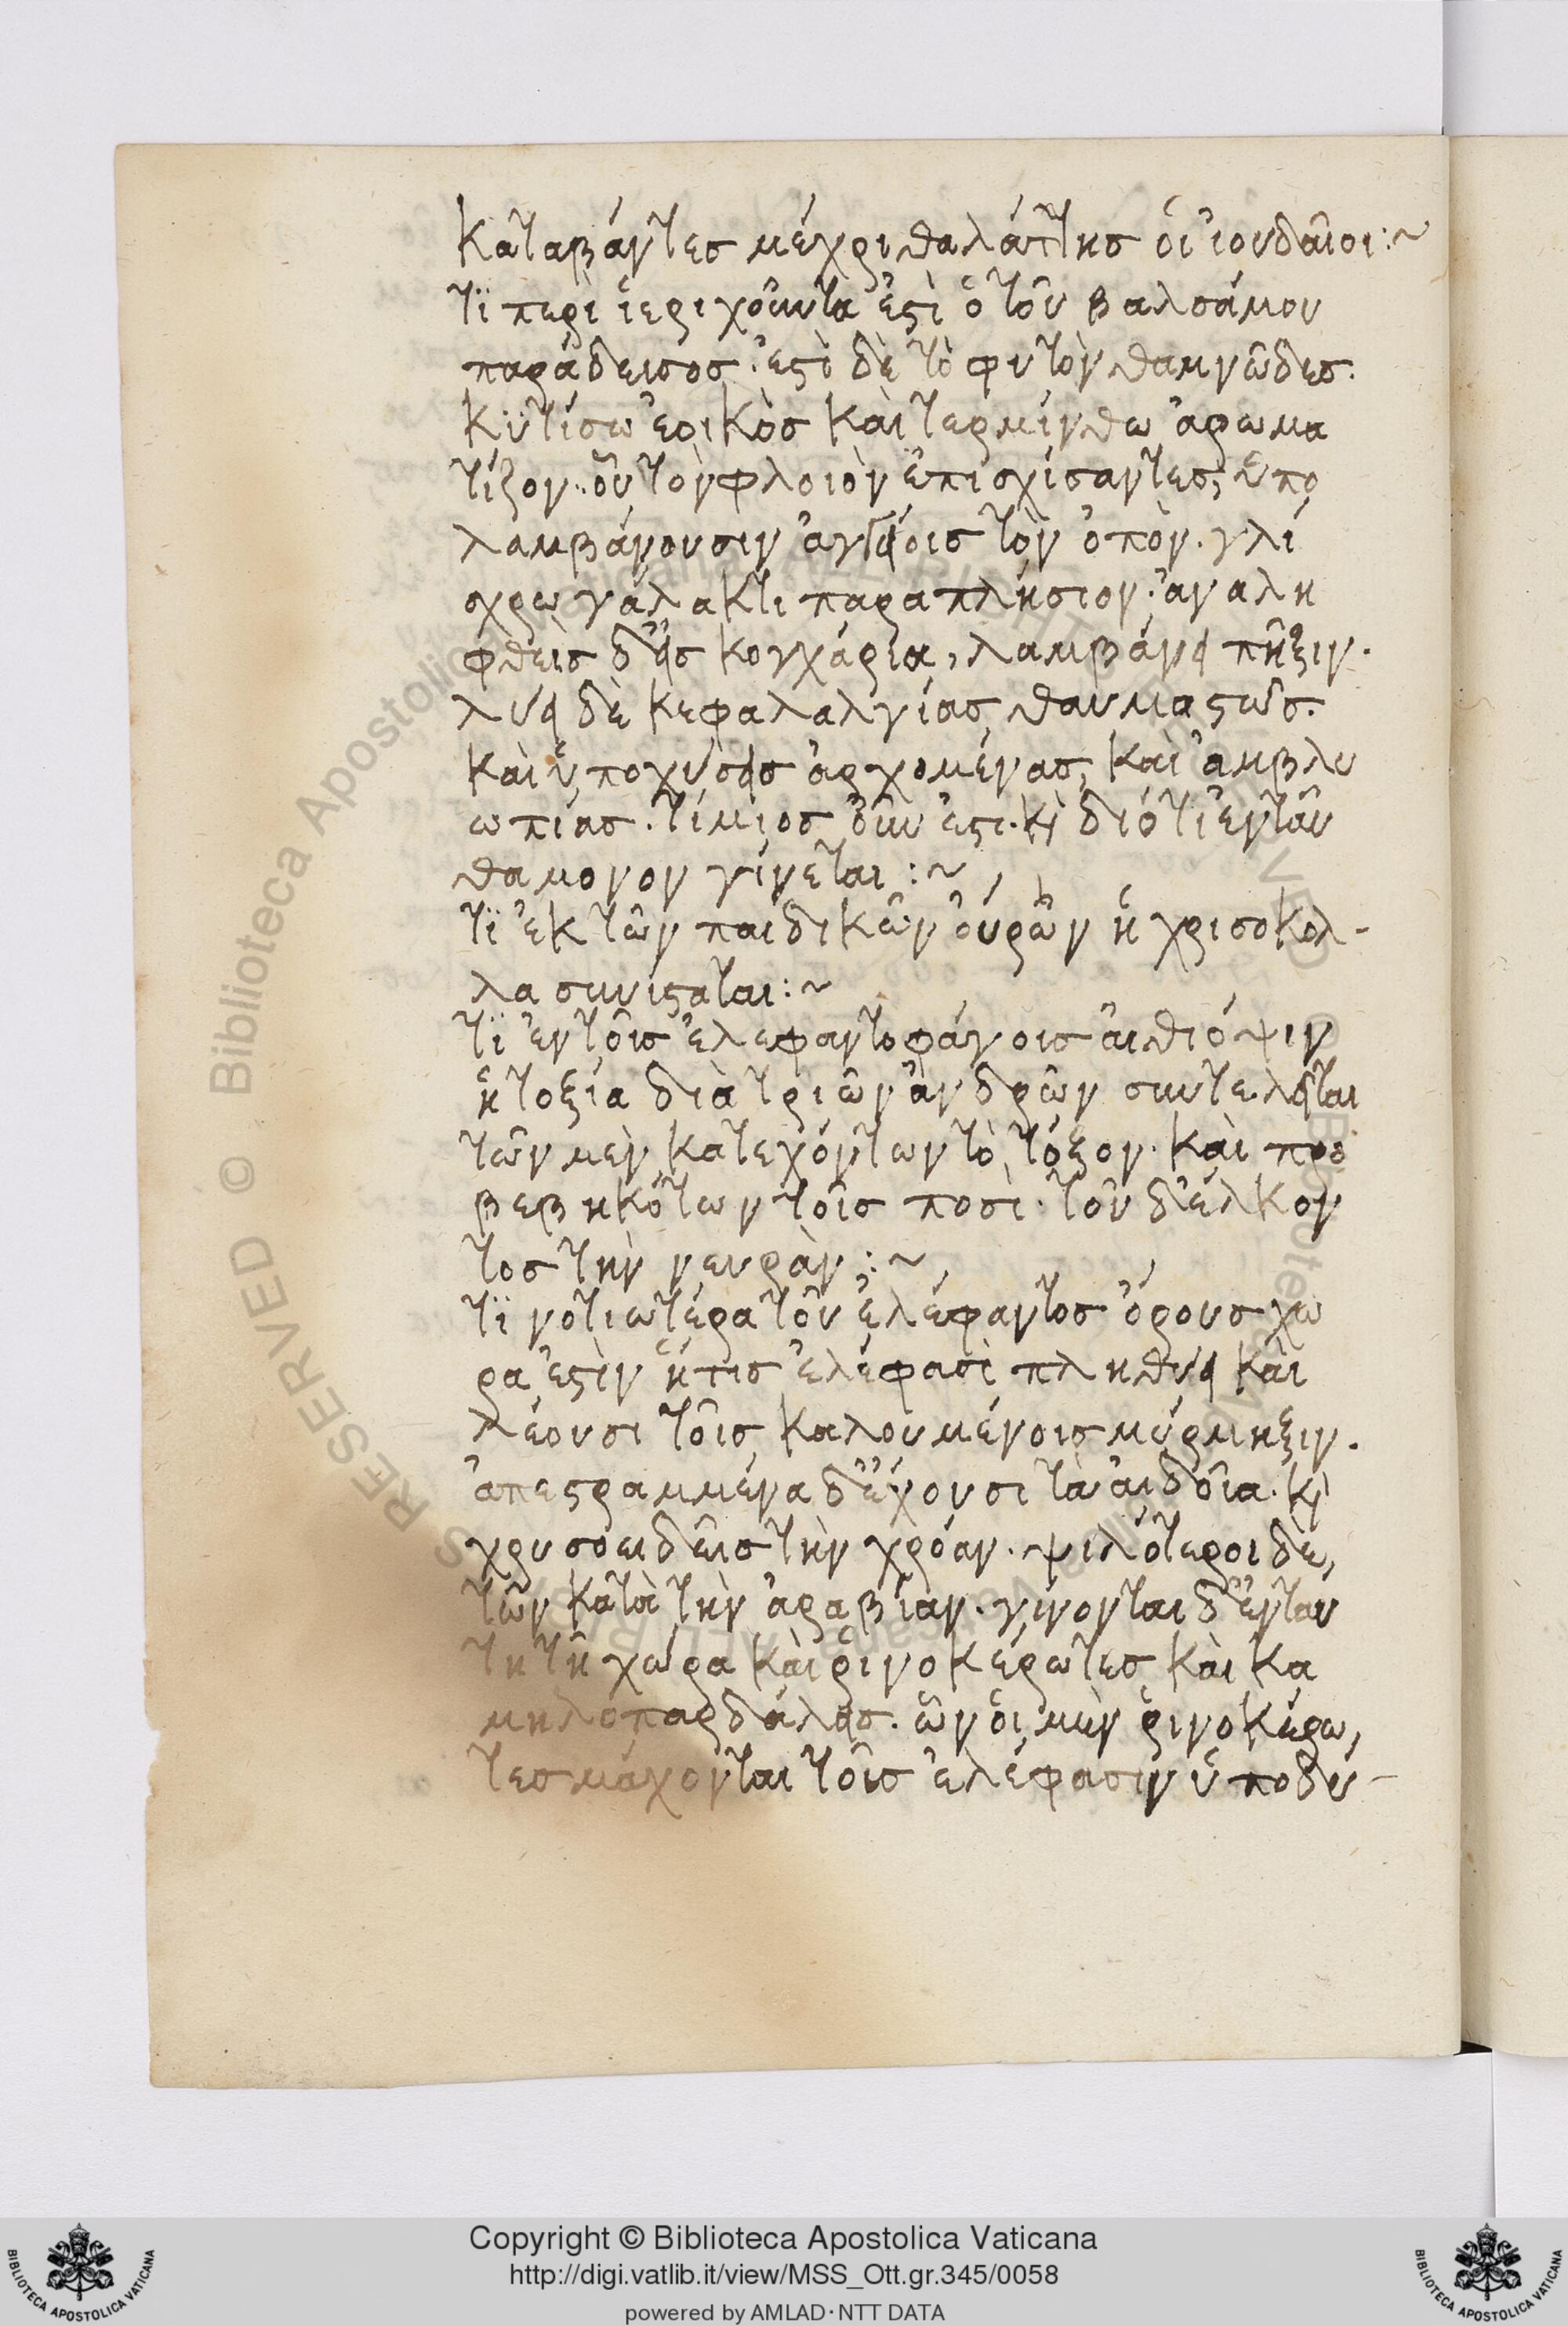 καταβάντες μέχρι θαλάττης ὁι ἰουδαῖοι:~
τΐ περὶ ἱεριχοῦντα ἐστὶ ὁ τοῦ βαλσάμου
παράδεισος. ἐστὶ δὲ τὸ φυτὸν θαμνῶδες.
κϋτίσω ἐοικὸς καὶ τερμίνθω ἀρωμα
τίζον. οὗ τὸν φλοιὸν ἐπισχίσαντες, ὑπο
λαμβάνουσιν ἀγγείοις τὸν ὀπὸν. γλί
σχρω γάλακτι παραπλήσιον. ἀναλη
φθεὶς δ' εἰς κογχάρια, λαμβάνει πῆξιν.
λύει δὲ κεφαλαλγίας θαυμαστῶς.
καὶ ὑποχύσεις ἀρχομένας, καὶ ἀμβλυ
ωπίας. τίμιος οὖν ἐστι. κὶ διότι ἐνταῦ
θα μονον γίνεται:~
τΐ ἐκ τῶν παιδικῶν οὐρῶν ἡ χρισοκολ-
λα συνίσταται:~
τΐ ἐν τοῖς ἐλεφαντοφάγοις ἀιθιόψιν
ἡ τοξία διὰ τριῶν ἀνδρῶν συντελεῖται
τῶν μὲν κατεχόντων τὸ τόξον. καὶ προ
βεβηκότων τοῖς ποσὶ. τοῦ δ' ἕλκον
τος τὴν νευρὰν:~
τΐ νοτιωτέρα τοῦ ἐλέφαντος ὄρους χω
ρα ἐστὶν ἥτις ἐλέφασὶ πληθύει καὶ
λέουσι τοῖς καλουμένοις μύρμηξιν.
ἀπεστραμμένα δ' ἔχουσι τὰ ἀιδοῖα. κὶ
χρυσοειδεῖς τὴν χρόαν. ψιλότεροι δὲ,
τῶν κατὰ τὴν ἀραβίαν. γίνονται δ' ἐν ταύ
τη τῆ χώρα καὶ ῥινοκέρωτες καὶ κα
μηλοπαρδάλεις. ὧν ὁι μὲν ῥινοκέρω,
τες μάχονται τοῖς ἐλέφασιν ὑποδύ-
Copyright © Biblioteca Apostolica Vaticana
http://digi.vatlib.it/view/MSS_Ott.gr.345/0058
powered by AMLAD·NTT DATA